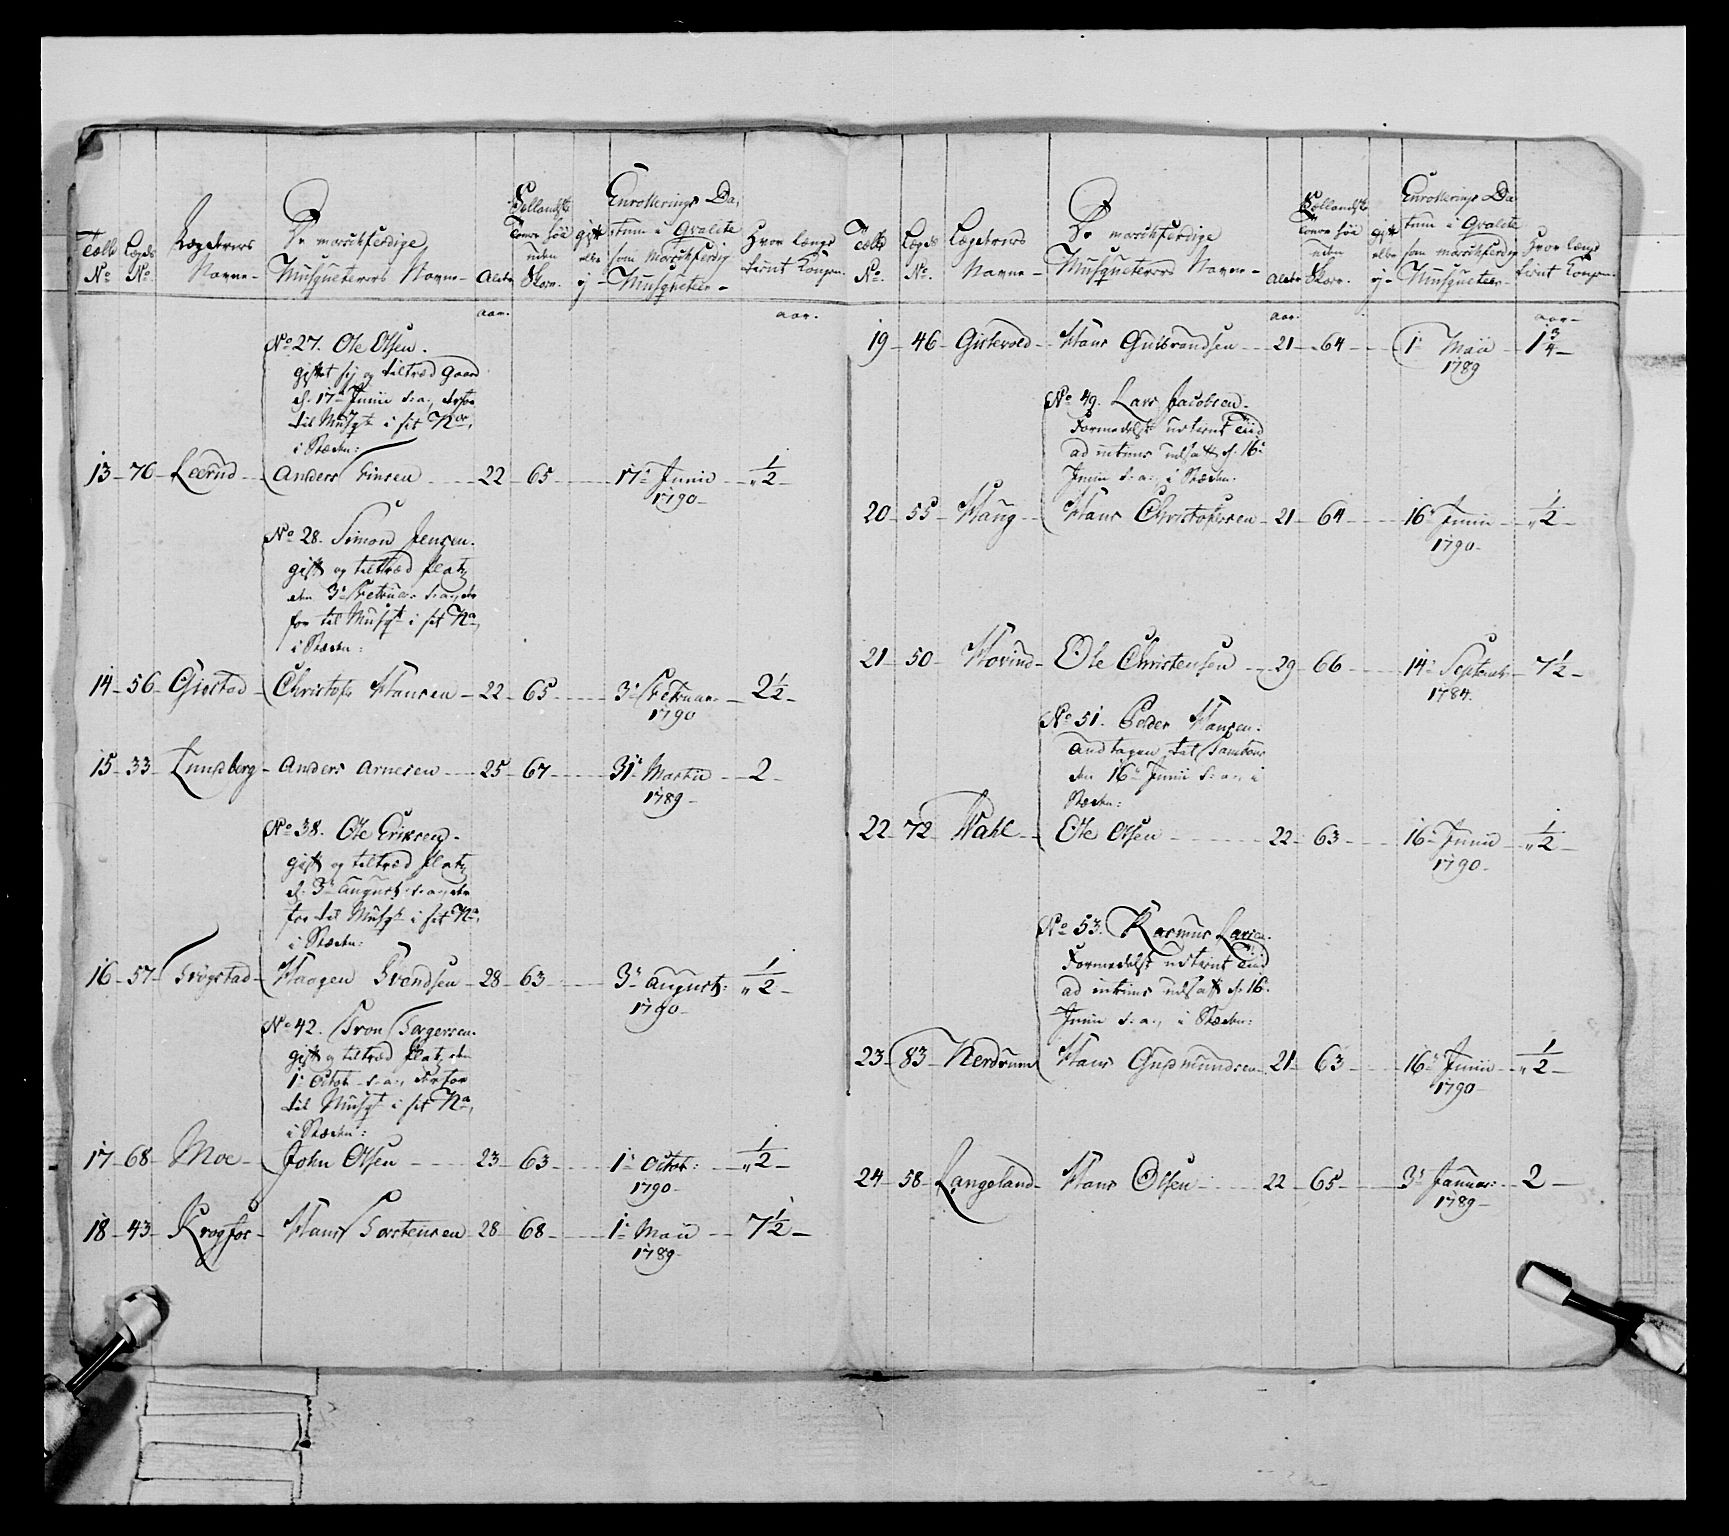 Tælle No. Lægds No. Lægdernes Navne - De marschferdige Musqueterers Navne - Alder Sellandske Tomre høi uden Skoen. gift elle ej - Enrollerings Datum i Qvalite som marschferdig Musqueteer - Hvor længe tient Kongen.
aar. aar.
No 27. Ole Olsen.
giftet sig og tiltræd Gaard
d. 17de Junii s: a:, derfor
til Musqt i sit No,
i Stæden:
13 - 76 - Leerud - Anders Finsen - 22 - 65 - 17de Junii - ½ -
1790 -
No 28. Simon Jensen.
gift og tiltræd Platz
den 3de Februar s: a:, der
for til Musqt i sit No,
i Stæden:
14 - 56 - Gistad - Christofr Hansen - 22 - 65 - 3de Februar - 2½ -
1790
15 - 33 - Lundberg - Anders Arnesen - 25 - 67 - 31te Martii - 2 -
1789 -
No 38. Ole Eriksen -
gift og tiltræd Platz
d. 3de Augusti s: a:, der
for til Musqt i sit No,
i Stæden:
16 - 57 - Trøgstad - Haagen Svendsen - 28 - 63 - 3de Augusti: - ½ -
1790 -
No 42. Tron Torgersen.
gift og tiltræd Platz den
1te Octob s: a:, derfor
til Musqt i sit No,
i Stæden:
17 - 68 - Moe - John Olsen - 23 - 63 - 1te Octob: - ½ -
1790 -
18 - 43 - Krogfos - Hans Torstensen - 28 - 68 - 1te Maii - 7½ -
1789 -
Tælle No. Lægds No. Lægdernes Navne - De marschferdige Musqueterers Navne - Alder Sællandske Tomre høi uden Skoen. gift elle ej - Enrollerings Datum i Qvalite som marschferdig Musqueteer - Hvor længe tient Kongen.
aar. aar -
19 - 46 - Gistevold - Hans Gulbrandsen - 21 - 64 - 1te Maii - 1¾ -
1789
No 49. Lars Jacobsen -
Formedelst udtient Tiid
ad intrims udsatt d. 16de
Junii s: a:, i Stæden:
20 - 55 - Haug - Hans Christofersen - 21 - 64 - 16de Junii - ½ -
1790 -
21 - 50 - Hovind - Ole Christensen - 29 - 66 - 14de Septemb - 7½ -
1784.
No 51. Peder Hansen:
andtagen til Tambour
den 16de Junii s: a:, i
Stæden:
22 - 72 - Wahl - Ole Olsen - 22 - 63 - 16de Junii - ½ -
1790 -
No 53. Rasmus Larsen.
Formedelst udtient Tiid
ad intrims udsatt d. 16de
Junii s: a:, i Stæden:
23 - 83 - Nerdrum Hans Gudmundsen - 21 - 63 - 16de Junii - ½ -
1790
24 - 58 - Langeland - Hans Olsen - 22 - 65 - 3de Januar: - 2 -
1789 -